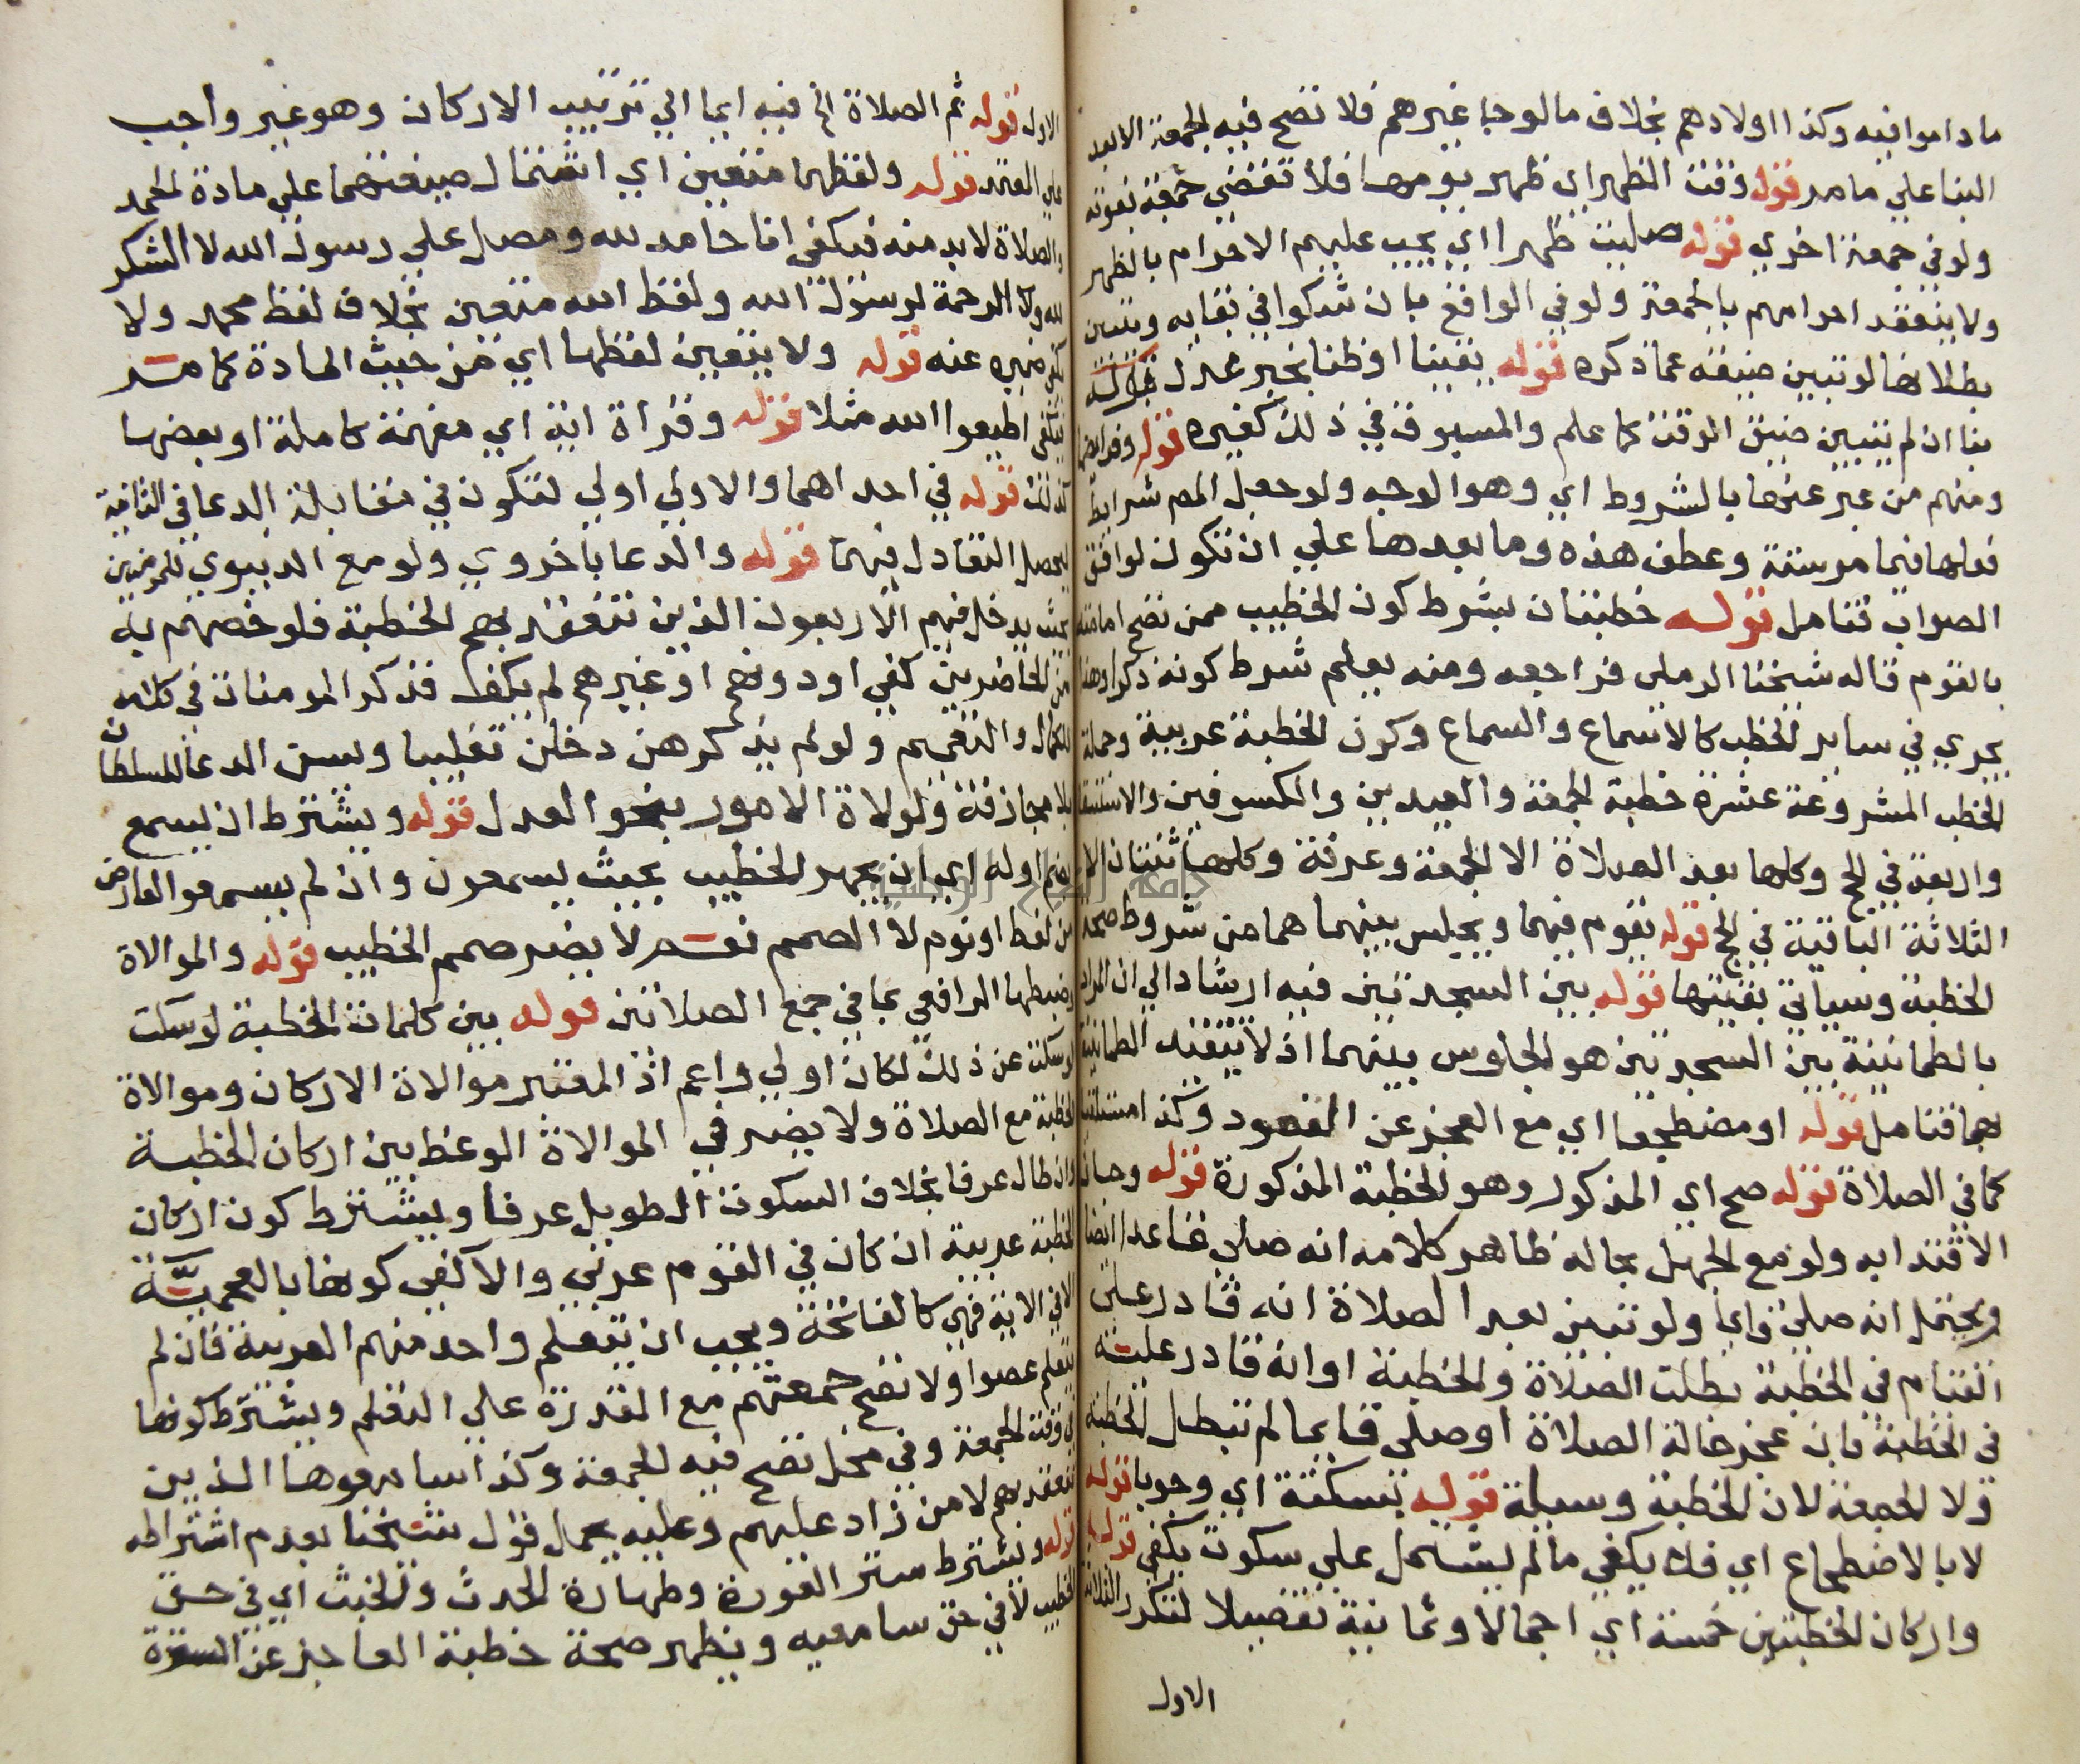 ما داموا فيه وكذا اولادهم بخلاف ما لو جا غيرهم فلا تصح فيه الجمعة الا بعد
البنا علي ما مر قوله وقت الظهر اي ظهر يومها فلا تقضي جمعة بفوته
ولو في جمعة اخري قوله صليت ظهرا اي يجب عليهم الاحرام بالظهر
ولا ينعقد احرامهم بالجمعة ولو في الواقع بان شكوا في بقايه وتبين
بطلانها لو تبين ضيقه عما ذكره قوله يقينا او ظنا بخبر عدل قوله
بنا ان لم يتبين ضيق الوقت كما علم والمسبوق في ذلك كغيره قوله وفرايضها
ومنهم من عبر عنها بالشروط اي وهو الوجه ولو جعل المص شرايط
فعلها فيما مر ستة وعطف هذه وما بعدها علي ان تكون لوافق
الصواب فتامل قوله خطبتان بشرط كون الخطيب ممن تصح امامته
بالقوم قاله شيخنا الرملي فراجعه ومنه يعلم شرط كونه ذكرا وهذا
يجري في ساير الخطب كالاسماع والسماع وكون الخطبة عربية وجملة
الخطب المشروعة عشرة خطبة الجمعة والعيدين والكسوفين والاستسقا
واربعة في الحج وكلها بعد الصلاة الا الجمعة وعرفة وكلها ثنتان الا
الثلاثة الباقية في الحج قوله يقوم فيهما ويجلس بينهما هما من شروط صحة
الخطبة وسياتي بقيتها قوله بين السجدتين فيه ارشاد الي ان المراد
بالطمانينة بين السجدتين هو الجلوس بينهما اذ لا يتقيد الطمانينة
بهما فتامل قوله او مضطجعا اي مع العجز عن القعود وكذا مستلقيا
كما في الصلاة قوله صح اي المذكور وهو الخطبة المذكورة قوله وجاز
الاقتدا به ولو مع الجهل بحاله ظاهر كلامه انه صلي قاعدا ايضا
ويحتمل انه صلي قايما ولو تبين بعد الصلاة انه قادر علي
القيام في الخطبة بطلت الصلاة والخطبة او انه قادر عليه
في الخطبة بان عجز حالة الصلاة او صلي قايما لم تبطل الخطبة
ولا الجمعة لان الخطبة وسيلة قوله بسكتة اي وجوبا قوله
لا بالاضطجاع اي فلا يكفي ما لم يشتمل علي سكوت يكفي قوله
واركان الخطبتين خمسة اي اجمالا وثمانية تفصيلا لتكرر الثلاثة
الاول
الاول قوله ثم الصلاة الخ فيه ايما الي ترتيب الاركان وهو غير واجب
علي المعتمد قوله ولفظهما متعين اي اشتمال صيغتهما علي مادة الحمد
والصلاة لا بد منه فيكفي انا حامد لله ومصل علي رسول الله لا الشكر
لله ولا الرحمة لرسول الله ولفظ الله متعين بخلاف لفظ محمد ولا
يكفي ضميره عنه قوله ولا يتعين لفظها اي من حيث المادة كما مر
فيكفي اطيعوا الله مثلا قوله وقراة اية اي مفهمة كاملة او بعضها
كذلك قوله في احداهما والاولي اولي لتكون في مقابلة الدعا في الثانية
ليحصل التعادل فيهما قوله والدعا باخروي ولو مع الدنيوي للمومنين
بحيث يدخل فيهم الاربعون الذين تنعقد بهم الخطبة فلو خصهم به
من الحاضرين كفي او دونهم او غيرهم لم يكف فذكر المومنات في كلامه
للكمال والتعميم ولو لم يذكرهن دخلن تغليبا ويسن الدعا للسلطان
بلا مجازفة ولولاة الامور بنحو العدل قوله ويشترط ان يسمع
بضم اوله اي بان يجهر الخطيب بحيث يسمعون وان لم يسمعوا لعارض
من لغط او نوم لا الصمم نعم لا يضر صمم الخطيب قوله والموالاة
وضبطها الرافعي بما في جمع الصلاتين قوله بين كلمات الخطبة لو سكت
لو سكت عن ذلك لكان اولي واعم اذ المعتبر موالاة الاركان وموالاة
الخطبة مع الصلاة ولا يضر في الموالاة الوعظ بين اركان الخطبة
وان طال عرفا بخلاف السكوت الطويل عرفا ويشترط كون اركان
الخطبة عربية ان كان في القوم عربي والا كفي كونها بالعجمية
الا في الاية فهي كالفاتحة ويجب ان يتعلم واحد منهم العربية فان لم
يتعلم عصوا ولا تصح جمعتهم مع القدرة علي التعلم ويشترط كونها
في وقت الجمعة وفي محل تصح فيه الجمعة وكذا سامعوها الذين
تنعقد بهم لا من زاد عليهم وعليه يحمل قول شيخنا بعدم اشتراطه
قوله ويشترط ستر العورة وطهارة الحدث والخبث اي في حق
الخطيب لا في حق سامعيه ويظهر صحة خطبة العاجز عن السترة